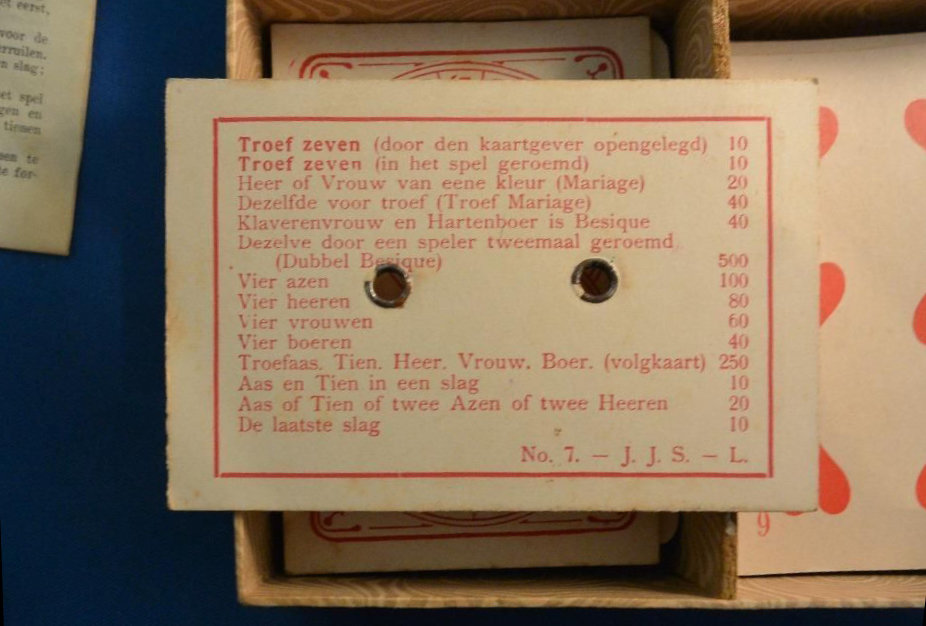 et eerst,
voor de
erruilen.
n slag;
et spel
gen en
tienen
en te
le for-
Troef zeven (door den kaartgever opengelegd) 10
Troef zeven (in het spel geroemd) 10
Heer of Vrouw van eene kleur (Mariage) 20
Dezelfde voor troef (Troef Mariage) 40
Klaverenvrouw en Hartenboer is Besique 40
Dezelve door een speler tweemaal geroemd
(Dubbel Besique) 500
Vier azen 100
Vier heeren 80
Vier vrouwen 60
Vier boeren 40
Troefaas. Tien. Heer. Vrouw. Boer. (volgkaart) 250
Aas en Tien in een slag 10
Aas of Tien of twee Azen of twee Heeren 20
De laatste slag 10
No. 7. — J. J. S. — L.
9